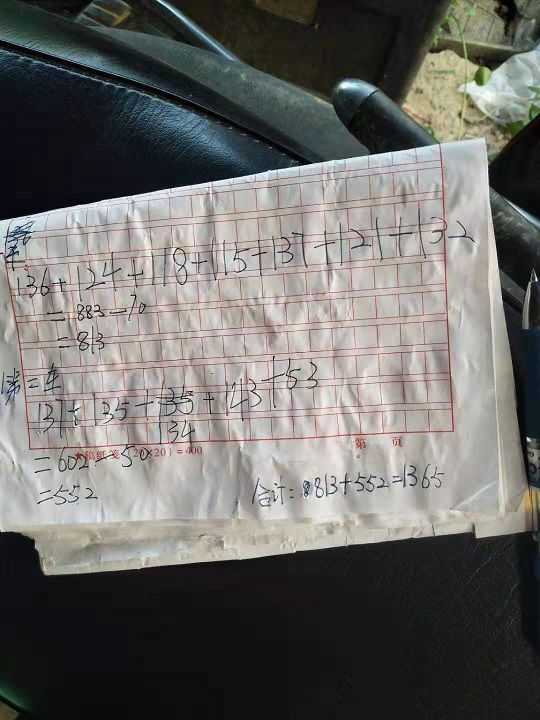 136+124+118+115+137+121+132
=883-70
=813
第二车
137+135+134+143+53
=602-50
=552
合计：813+552=1365
20×20)=400
第 页